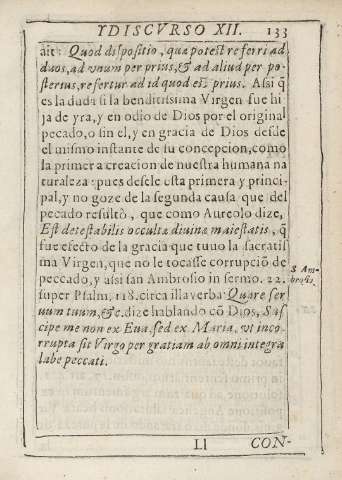 YDISCVRSO XII. 133
ait: Quod dispositio, quæ potest referri ad
duos, ad vnum per prius, & ad aliud per po-
sterius, refertur ad id quod est prius. Assi q̃
es la duda si la benditissima Virgen fue hi
ja de yra, y en odio de Dios por el original
pecado, o sin el, y en gracia de Dios desde
el mismo instante de su concepcion, como
la primera creacion de nuestra humana na
turaleza: pues desele esta primera y princi-
pal, y no goze de la segunda causa que del
pecado resultò, que como Aureolo dize,
Est detestabilis occultæ diuinæ maiestatis, q̃
fue efecto de la gracia que tuuo la sacratis
ma Virgen, que no le tocasse corrupciõ de
peccado, y assi san Ambrosio in sermo. 22.
super Psalm. 118. circa illa verba Quære ser
uum tuum, &c. dize hablando cõ Dios, Sus
cipe me non ex Eua, sed ex Maria, vt inco-
rrupta sit Virgo per gratiam ab omni integra
labe peccati.
S. Am-
brosio.
Ll CON-